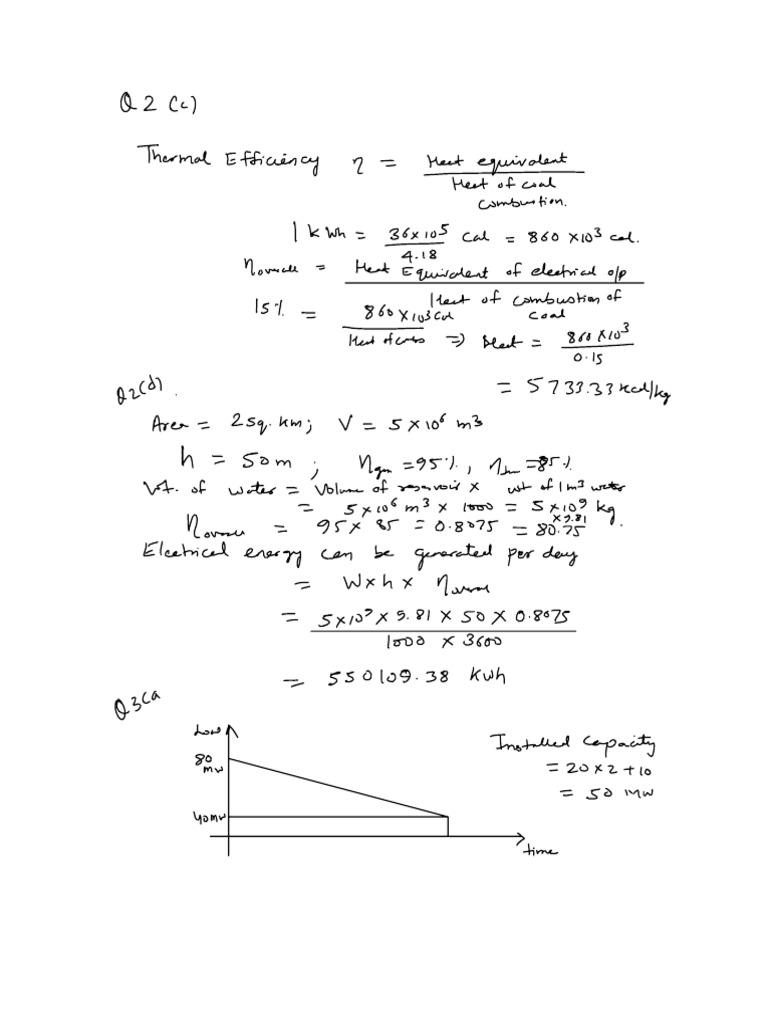 Q2 (c)
Thermal Efficiency η = Heat equivalent / Heat of coal combustion.
1 kWh = 36×10⁵ / 4.18 cal = 860 ×10³ cal.
ηoverall = Heat Equivalent of electrical o/p / Heat of combustion of coal
15% = 860 ×10³ cal / Heat of comb => Heat = 860 ×10³ / 0.15
= 5733.33 kcal/kg
Q2(d).
Area = 2 sq. km; V = 5×10⁶ m³
h = 50m ; ηgen = 95%, = 85%
Wt. of water = Volume of reservoir × wt of 1 m³ water
= 5×10⁶ m³ × 1000 = 5×10⁹ kg
×9.81
ηoverall = 95 × 85 = 0.8075 = 80.75.
Electrical energy can be generated per day
= W×h× ηoverall
= 5×10⁹ × 9.81 × 50 × 0.8075 / 1000 × 3600
= 550109.38 kWh
Q3(a
80 MW
40MW
time
Installed Capacity
= 20×2+10
= 50 MW